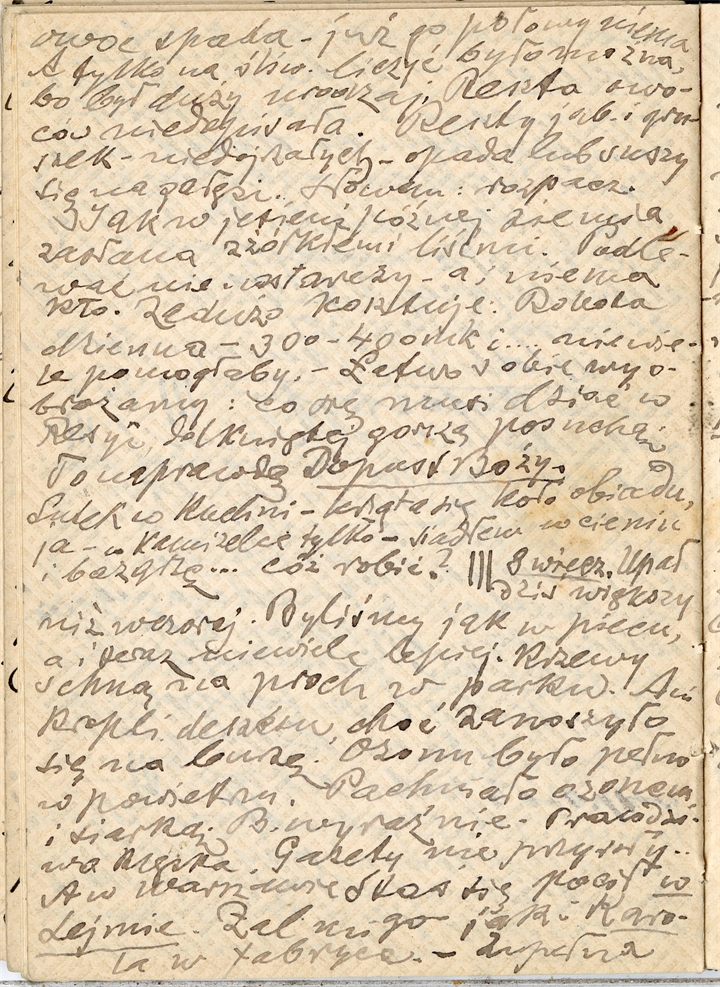 owoc spada - już go połowy niema
A tylko na śliw. liczyć było można,
bo był duży urodzaj. Reszta owo-
ców niedopisała. Resztę jabł. i gru-
szek - niedojrzałych - opada lub suszy
się na gałęzi. Słowem: rozpacz.
Jak w jesieni późnej ziemia
zasłana zżółkłemi liśćmi. Podle-
wać nie nastarczy - a i niema
kto. Zadużo kosztuje. Robota
dzienna - 300-400mk i.... niewie-
le pomogłaby. - Łatwo sobie wyo-
brażamy: co się musi dziać w
Rosyi, dotkniętej gorszą posuchą;
To naprawdę Dopust Boży.
w Kuchni - krząta się koło obiadu,
ja - w kamizelce tylko - siadłem w cieniu
i bazgrzę... cóż robić? ||| 8 wiecz. Upał
dziś większy
niż wczoraj. Byliśmy jak w piecu,
a i teraz niewiele lepiej. Krzewy
schną na proch w parku. Ani
kropli deszczu, choć zanosiło
się na burzę. Ozonu było pełno
w powietrzu. Pachniało ozonem
i siarką. B. wyraźnie. Prawdzi-
wa klęska. Gazety nie przyszły..
A w Warszawie Staś się pocił w
Sejmie. Żal mi go jak i Karo-
la w fabryce. - Zupełna